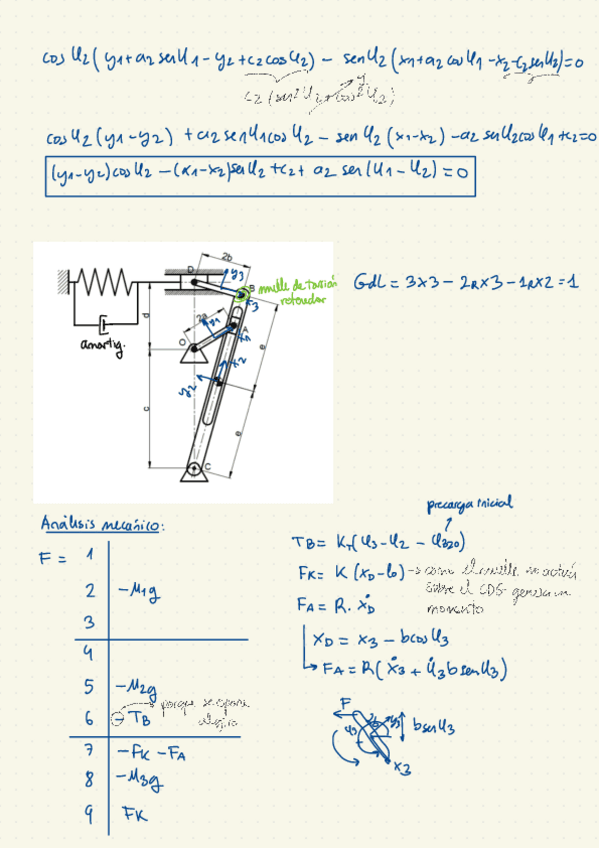 cos φ2 (y1 + a2 sen φ1 - y2 + c2 cos φ2) - sen φ2 (x1 + a2 cos φ1 - x2 - c2 sen φ2) = 0
c2 (sen²φ2 + cos²φ2) 1
cos φ2 (y1 - y2) + a2 sen φ1 cos φ2 - sen φ2 (x1 - x2) - a2 sen φ2 cos φ1 + c2 = 0
(y1 - y2) cos φ2 - (x1 - x2) sen φ2 + c2 + a2 sen (φ1 - φ2) = 0
2b
D
y3
B
muelle de torsión
rotacional
x3
GdL = 3x3 - 2Rx3 - 1Rx2 = 1
amortig.
d
2a
y1
A
x1
O
x2
y2
e
c
e
C
Análisis mecánico:
precarga inicial
F = 1
2 -M1g
3
4
5 -M2g
6 - TB porque se opone
al giro
7 - FK - FA
8 - M3g
9 FK
TB = KT (φ3 - φ2 - φ320)
FK = K (xD - l0) → como el muelle no actúa
sobre el CDG genera un
momento
FA = R · ẋD
xD = x3 - b cos φ3
FA = R (ẋ3 + φ̇3 b sen φ3)
F
y3
φ3
b sen φ3
x3